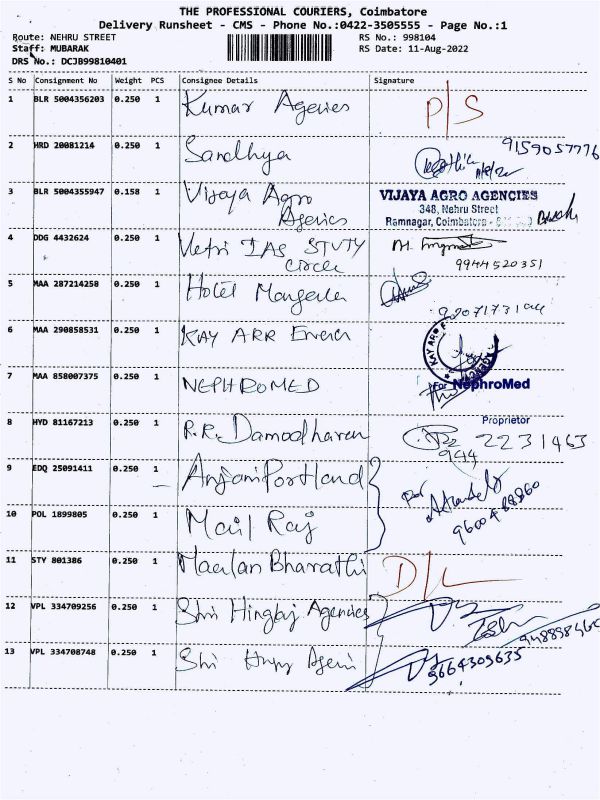 THE PROFESSIONAL COURIERS, Coimbatore
Delivery Runsheet - CMS - Phone No.:0422-3505555 - Page No.:1
Route: NEHRU STREET
RS No.: 998104
Staff: MUBARAK
RS Date: 11-Aug-2022
DRS No.: DCJB99810401
S No Consignment No Weight PCS Consignee Details Signature
1 BLR 5004356203 0.250 1 Kumar Agencies P/S
2 HRD 20081214 0.250 1 Sandhya 9159057776
3 BLR 5004355947 0.158 1 Vijaya Agro
Agencies
VIJAYA AGRO AGENCIES
348, Nehru Street
Ramnagar, Coimbatore
4 DDG 4432624 0.250 1 Vetri IAS STUTY
circle
9944520351
5 MAA 287214258 0.250 1 Hotel
6 MAA 290858531 0.250 1 KAY ARR
KAY AR
7 MAA 858007375 0.250 1 NEPHROMED
For NephroMed
Proprietor
8 HYD 81167213 0.250 1 R.R. Damodharan 2231463
944
9 EDQ 25091411 0.250 1 Anjani Portland
10 POL 1899805 0.250 1 Mail Raj
11 STY 801386 0.250 1 Bharathi D/L
12 VPL 334709256 0.250 1 Shri Hinglaj Agencies
13 VPL 334708748 0.250 1 Shri
9664309635